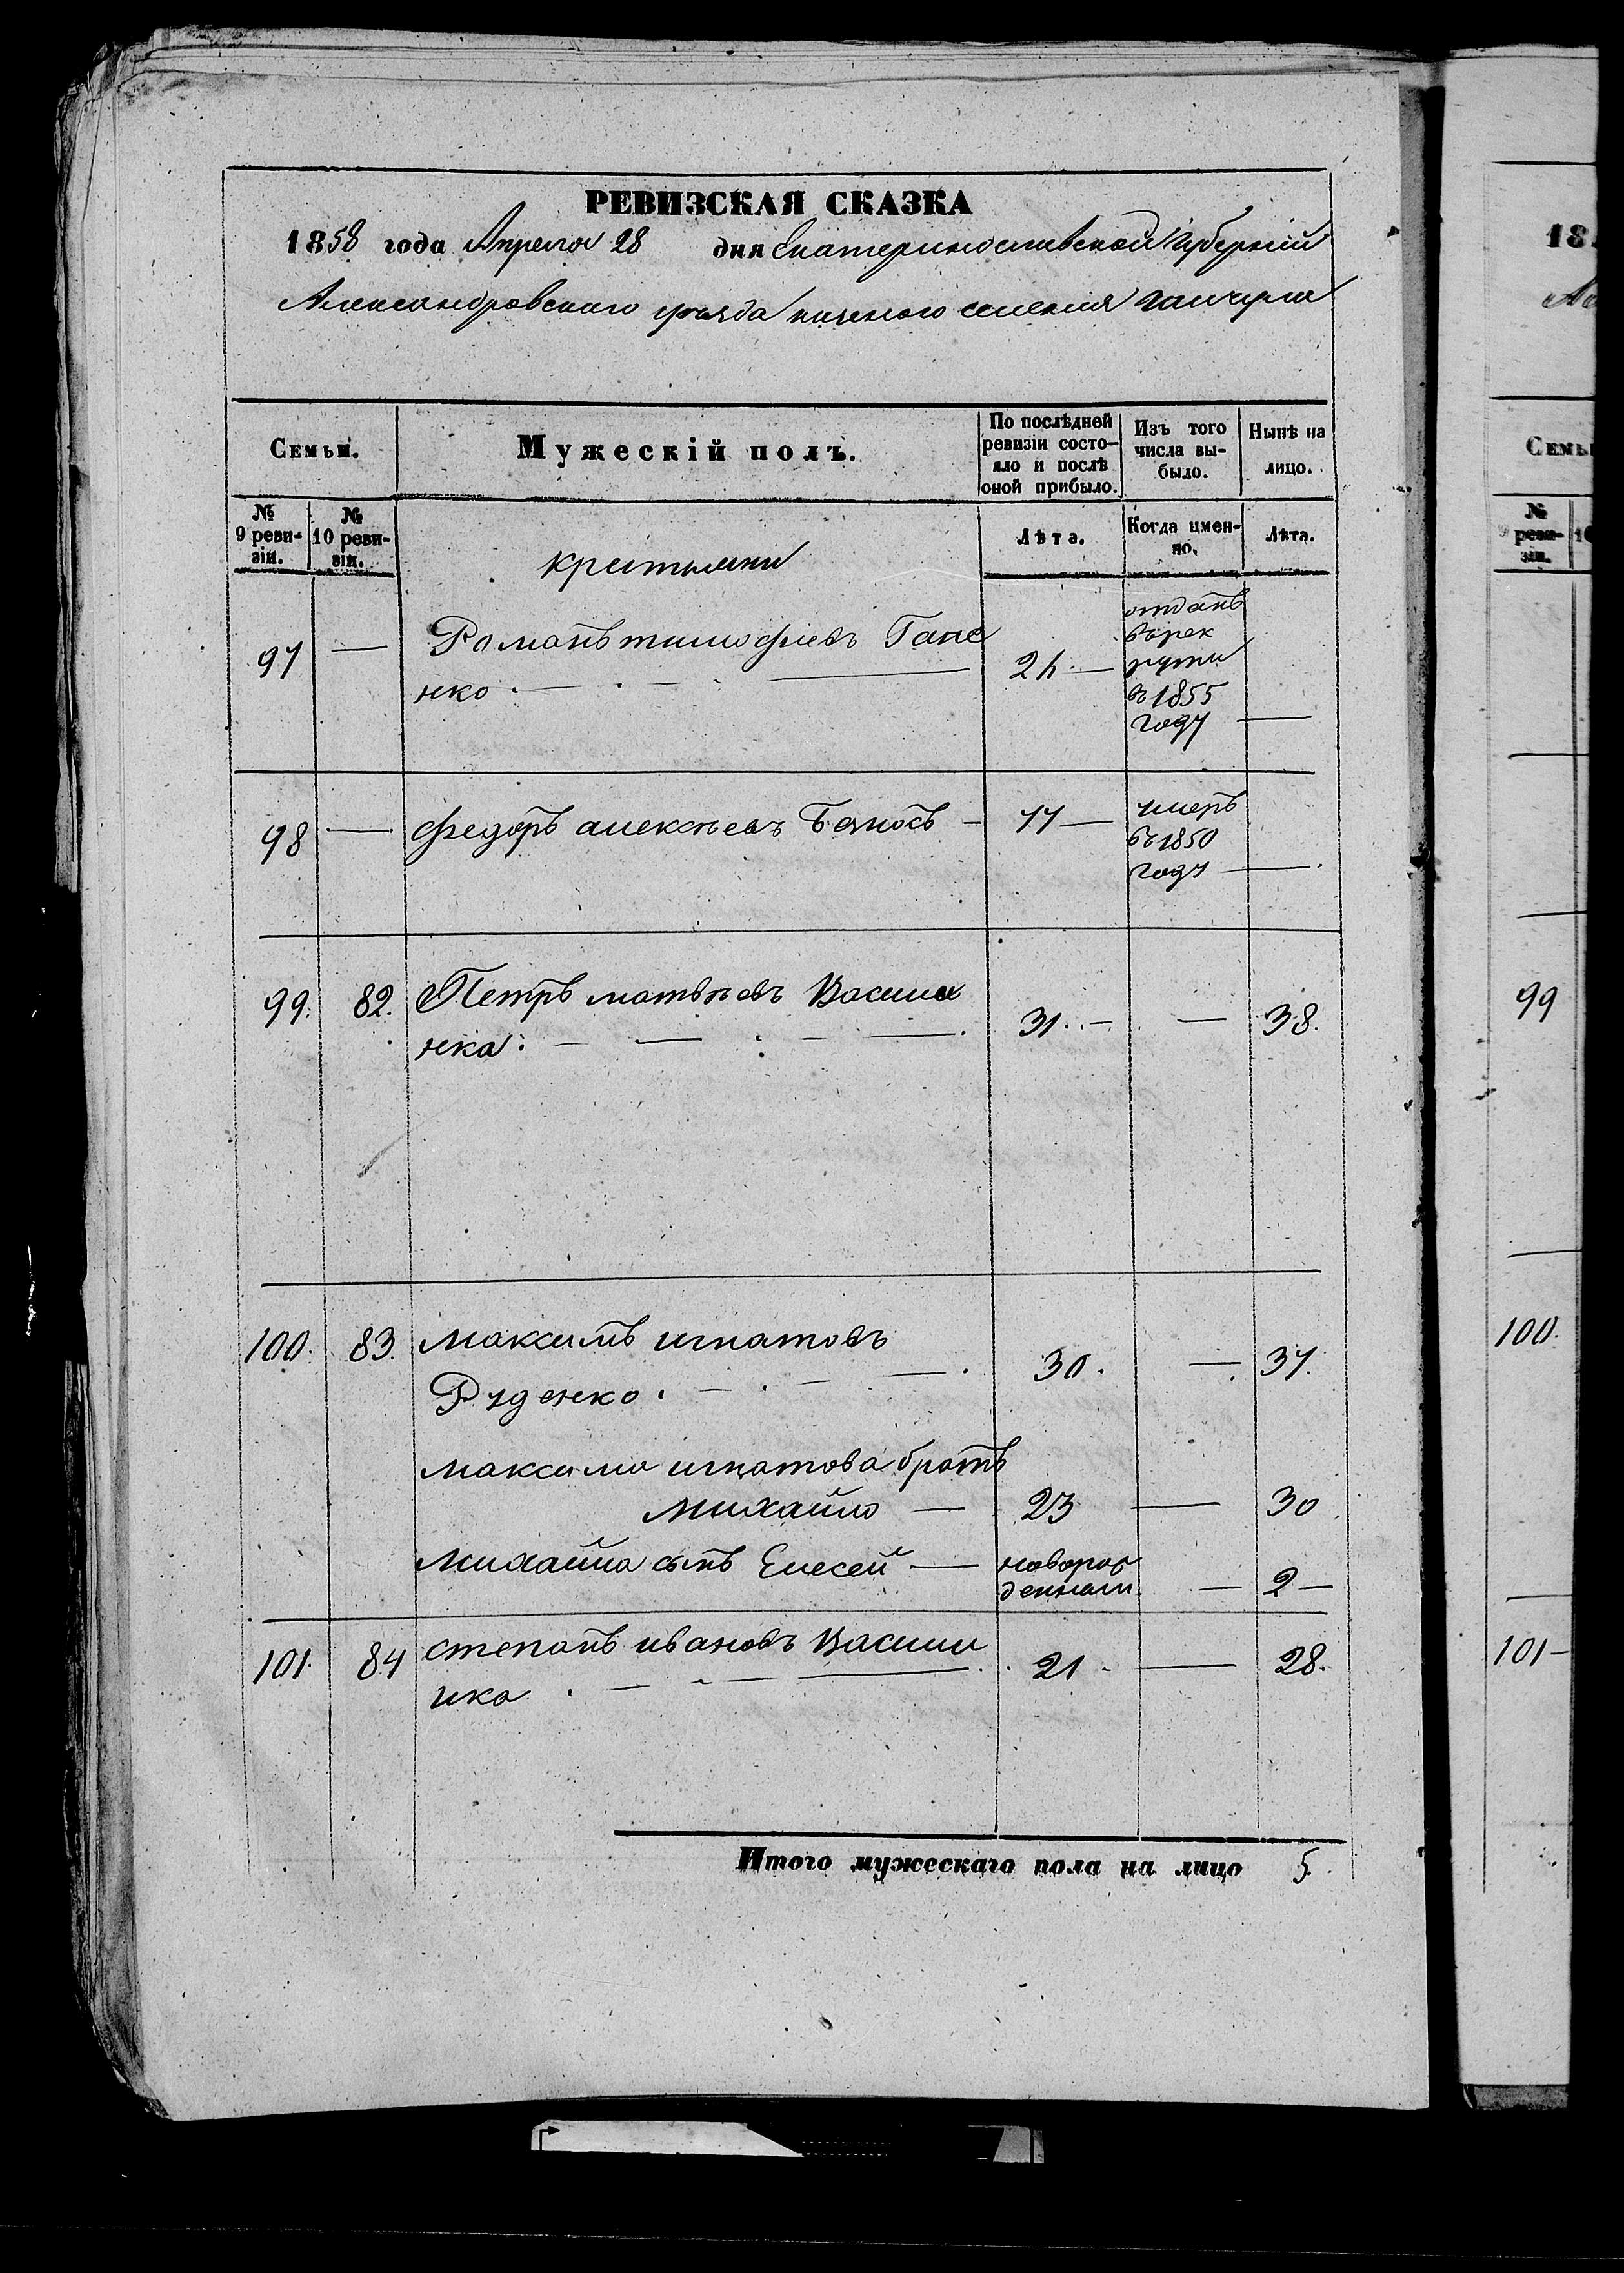 РЕВИЗСКАЯ СКАЗКА
1858 года Апреля 28 дня Екатеринославской Губерніи
Александровскаго уѣзда казеного селенія Гайчула
Семьи.
Мужескій полъ.
По послѣдней ревизіи состо-
яло и послѣ
оной прибыло.
Изъ того
числа вы-
было.
Нынѣ на
лицо.
№
9 реви-
зіи.
№
10 реви-
зіи.
крестьяни
Лѣта.
Когда имен-
но.
Лѣта.
97 — Романъ тимофіевъ Гапе
нко — 24 —
отданъ
въ рек
рути
въ 1855
году —
98 — федоръ алексѣевъ Бѧлосъ — 77 —
умеръ
въ 1850
году —
99. 82. Петръ матвѣевъ Васили
нка. — 31. — — 38.
100. 83. максимъ игнатовъ
Руденко. — 30. — 37.
максима игнатова братъ
михайло — 23 — 30
михайла сынъ Елесей — новорож
деннаи — 2 —
101. 84 степанъ ивановъ Васили
нка — 21. — 28.
Итого мужескаго пола на лицо 5.
18
Семьи
№
9 реви-
зіи.
10
99
100.
101 —